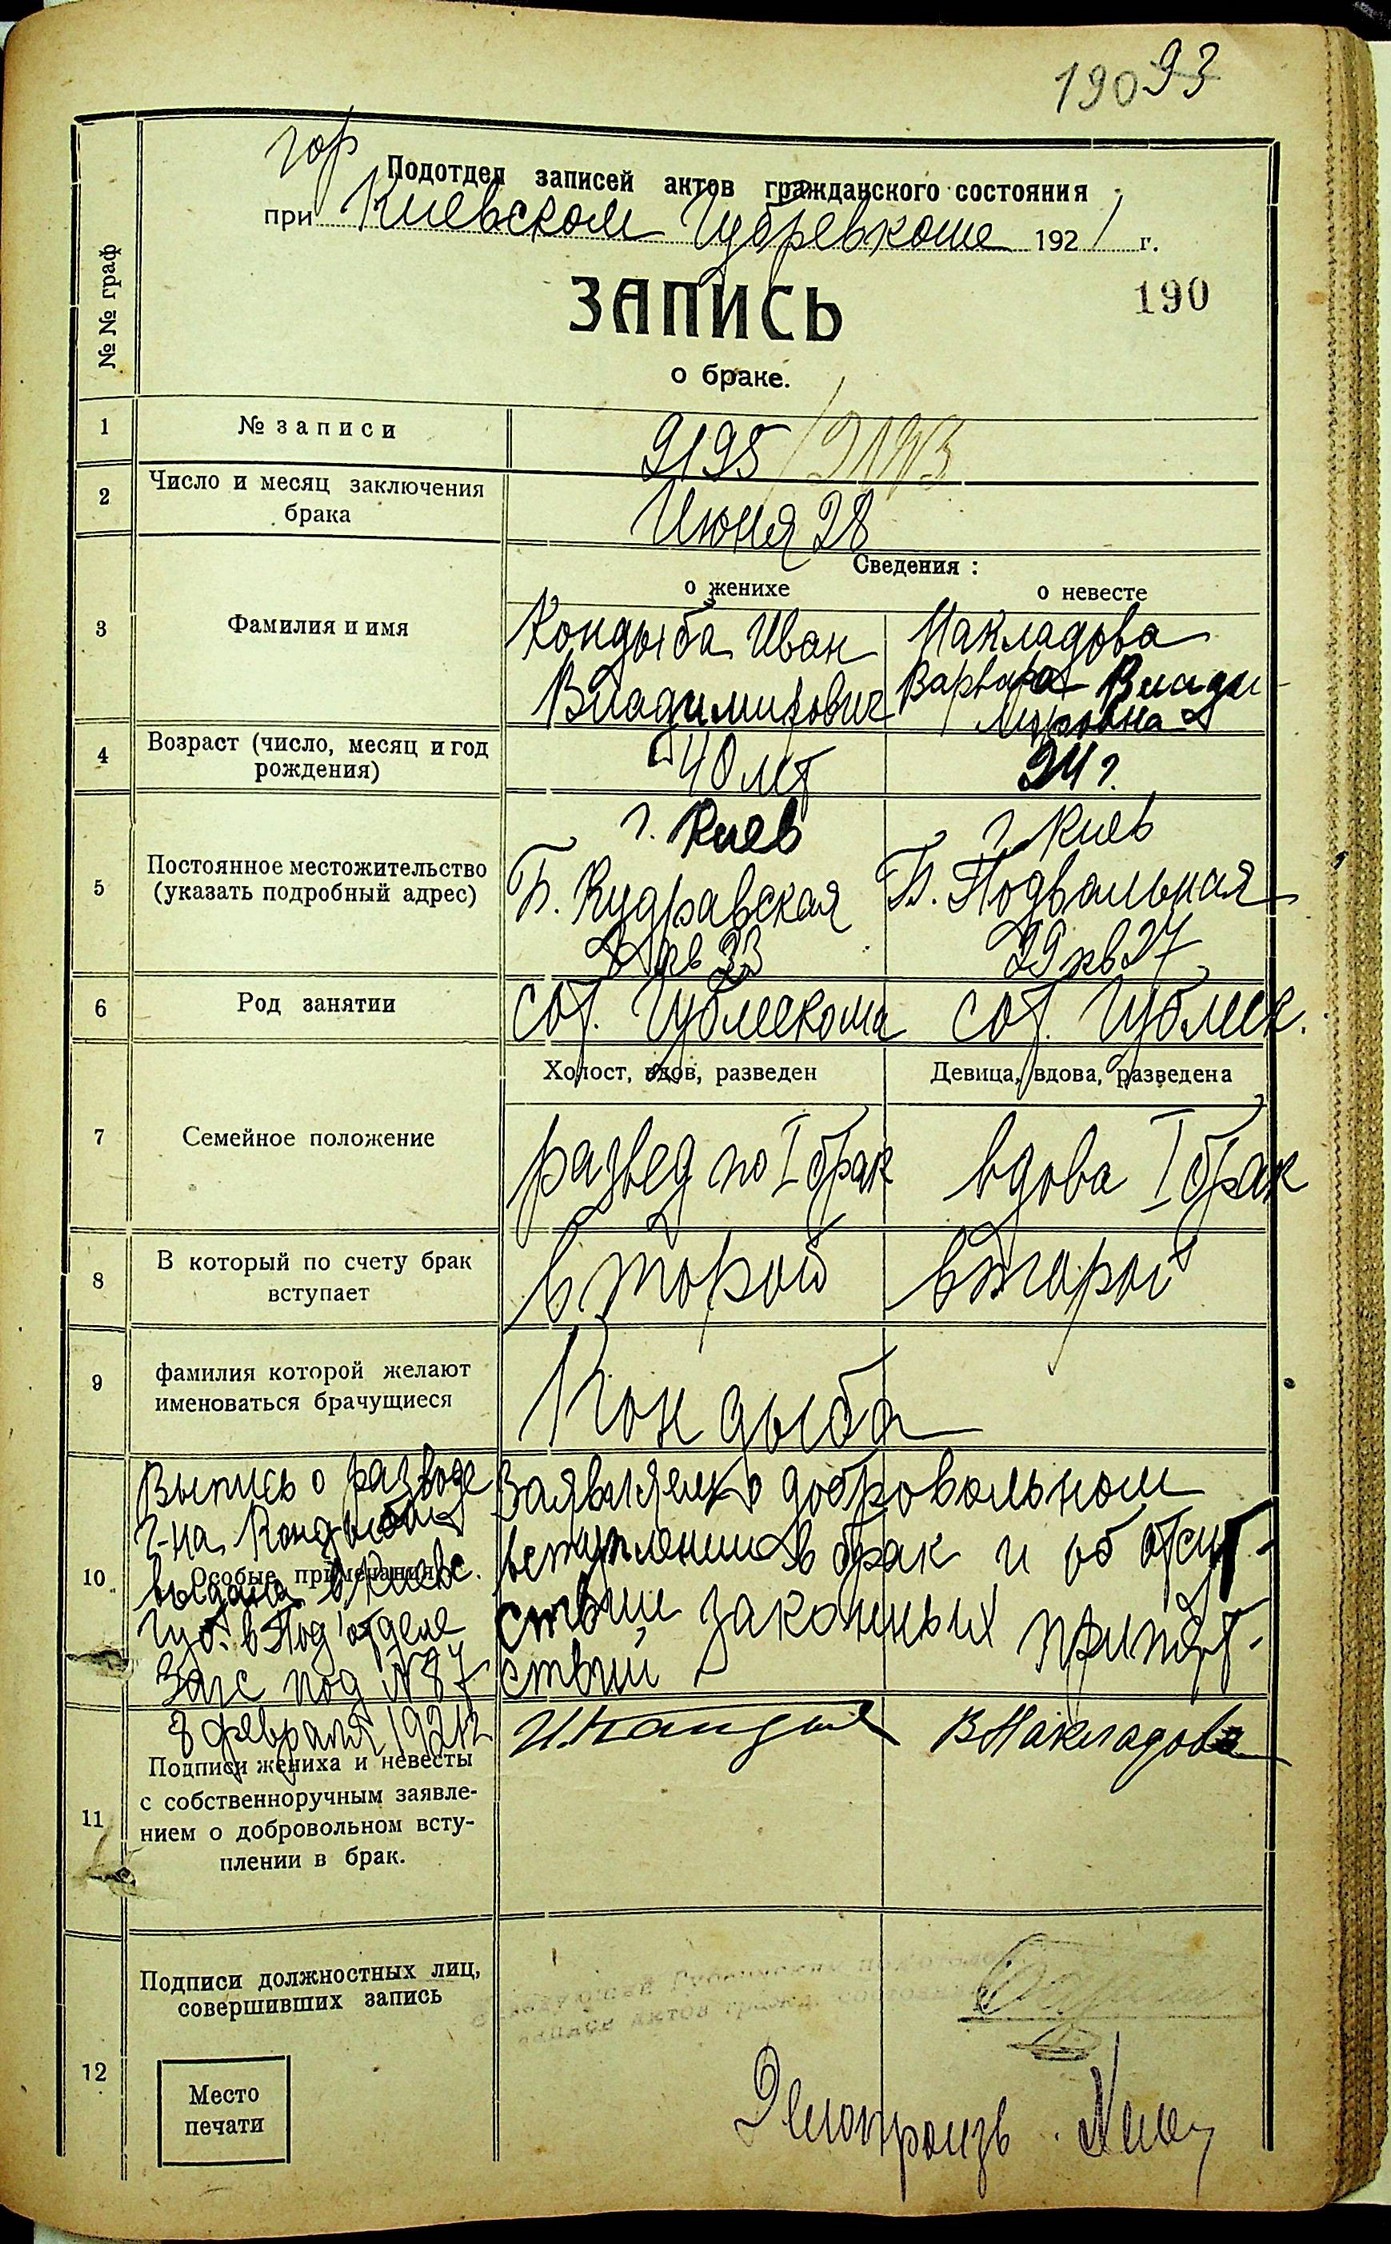 190 93
гор
Подотдел записей актов гражданского состояния
при Киевском Губревкоме 1921 г.
№№ граф
190
ЗАПИСЬ
о браке.
1 № записи 2195
2 Число и месяц заключения
брака Июня 28
Сведения :
о женихе о невесте
3 Фамилия и имя Кондыба Иван Макладова
Владимирович Варвара Влади-
мировна
4 Возраст (число, месяц и год
рождения) 40 лет 24 г.
г. Киев г. Киев
5 Постоянное местожительство
(указать подробный адрес) Б. Кудравская Б. Подвальная
кв 33 29 кв 27
6 Род занятии сот. Гублескома сот. Гублеск.
Холост, вдов, разведен Девица, вдова, разведена
7 Семейное положение развед по I брак вдова I брак
8 В который по счету брак
вступает второй второй
9 фамилия которой желают
именоваться брачущиеся Кондыба
Выпись о разводе Заявляем о добровольном
г-на Кондыбы вступлении в брак и об отсут-
10 Особые примечания
выдана в Киевс. ствии законных препят-
Губ. в Под'отделе
Загс под №87 ствий
8 февраля 1921 г. И. Кандыба В Макладова
11 Подписи жениха и невесты
с собственноручным заявле-
нием о добровольном всту-
плении в брак.
12 Подписи должностных лиц,
совершивших запись
Заведующий Губернским подотделом
записи актов гражд. состояния
Место
печати
Делопроизв.